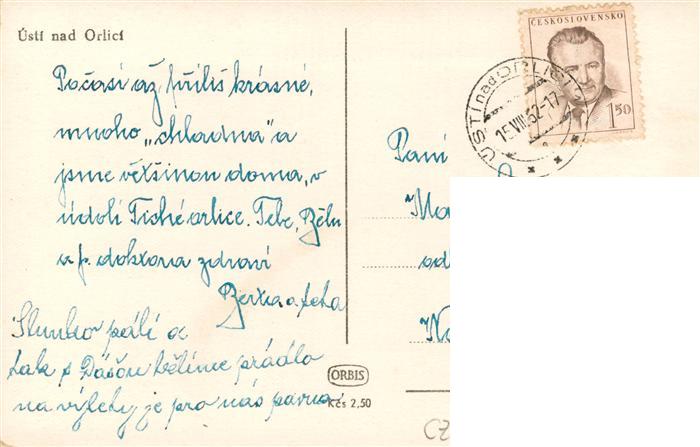 Ústí nad Orlicí
Počasí až příliš krásné,
mnoho „chladna" a
jsme většinou doma, v
údolí Tiché orlice. Tebe, Bélu
a p. doktora zdraví
Sluníčko pálí a
tak s Dášou bělíme prádlo
na výlety je pro nás parno.
ORBIS
Kčs 2,50
ČESKOSLOVENSKO
1,50
ÚSTÍ nad ORLICÍ 2
15.VIII.52-17
Paní
CZ